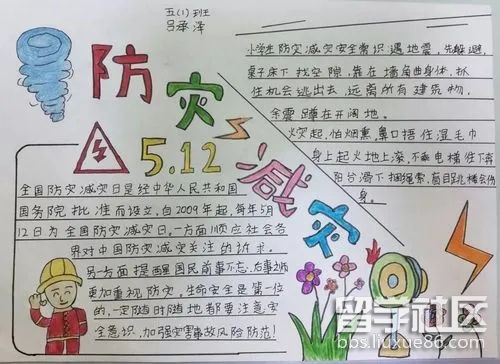 五(1)班
吕承泽
防灾
5.12
减灾
小学生防灾减灾安全常识遇地震，先躲避，
桌子床下找空隙，靠在墙角曲身体，抓
住机会逃出去，远离所有建筑物，
余震蹲在开阔地。
火灾起，怕烟熏，鼻口捂住湿毛巾
身上起火地上滚，不乘电梯往下奔
阳台滑下捆绳索，盲目跳楼会伤
身。
全国防灾减灾日是经中华人民共和国
国务院批准而设立，自2009年起，每年5月
12日为全国防灾减灾日，一方面顺应社会各
界对中国防灾减灾关注的诉求。
另一方面提醒国民前事不忘、后事之师
更加重视防灾，生命安全是第一位
的，一定随时随地都要注意安
全意识，加强灾害事故风险防范！
留学社区
bbs.liuxue86.com